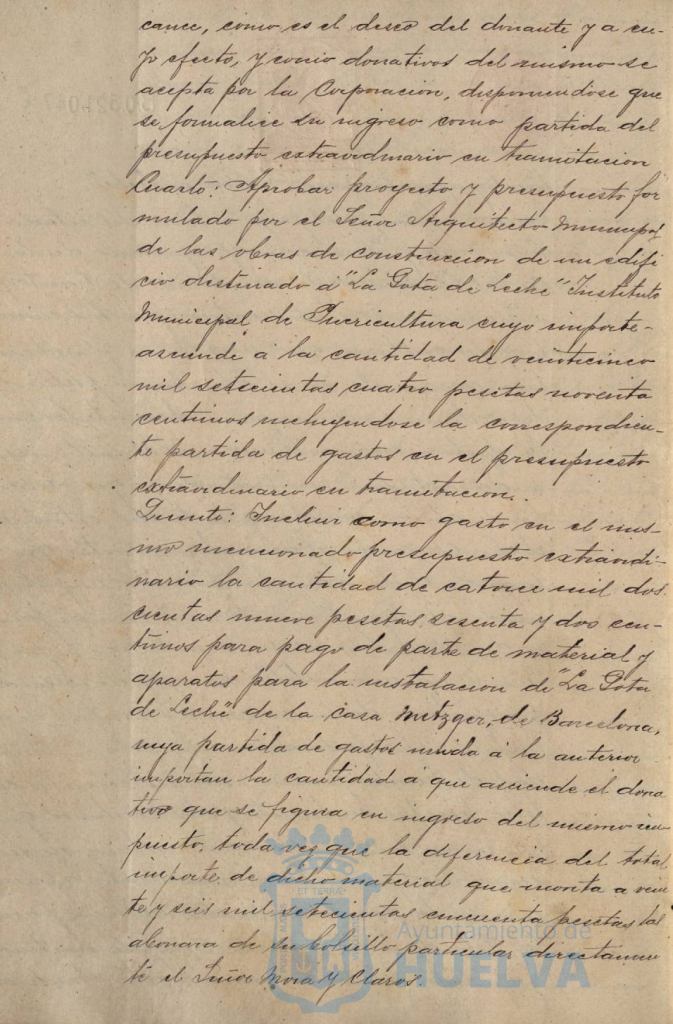 cance, como es el deseo del donante y a cu-
yo efecto, y como donativos del mismo se
acepta por la Corporacion, disponiendose que
se formalice su ingreso como partida del
presupuesto extraordinario en tramitacion
Cuarto: Aprobar proyecto y presupuesto for
mulado por el Señor Arquitecto Municipal
de las obras de construccion de un edifi
cio destinado á "La Gota de Leche" Instituto
Municipal de Puericultura cuyo importe-
asciende á la cantidad de venticinco
mil setecientas cuatro pesetas noventa
centimos incluyendose la correspondien-
te partida de gastos en el presupuesto
extraordinario en tramitacion.
Quinto: Incluir como gasto en el mis-
mo mencionado presupuesto extraordi-
nario la cantidad de catorce mil dos
cientas nueve pesetas sesenta y dos cen-
timos para pago de parte de material y
aparatos para la instalacion de "La Gota
de Leche" de la casa Metzger, de Barcelona,
cuya partida de gastos unida á la anterior
importan la cantidad á que asciende el dona
tivo que se figura en ingreso del mismo
puesto, toda vez que la diferencia del total
importe de dicho material que monta a vein
te y seis mil setecientas cincuenta pesetas lal
abonara de su bolsillo particular directamen
te el Señor Mora y Claros.
ET TERRÆ
Ayuntamiento de
HUELVA